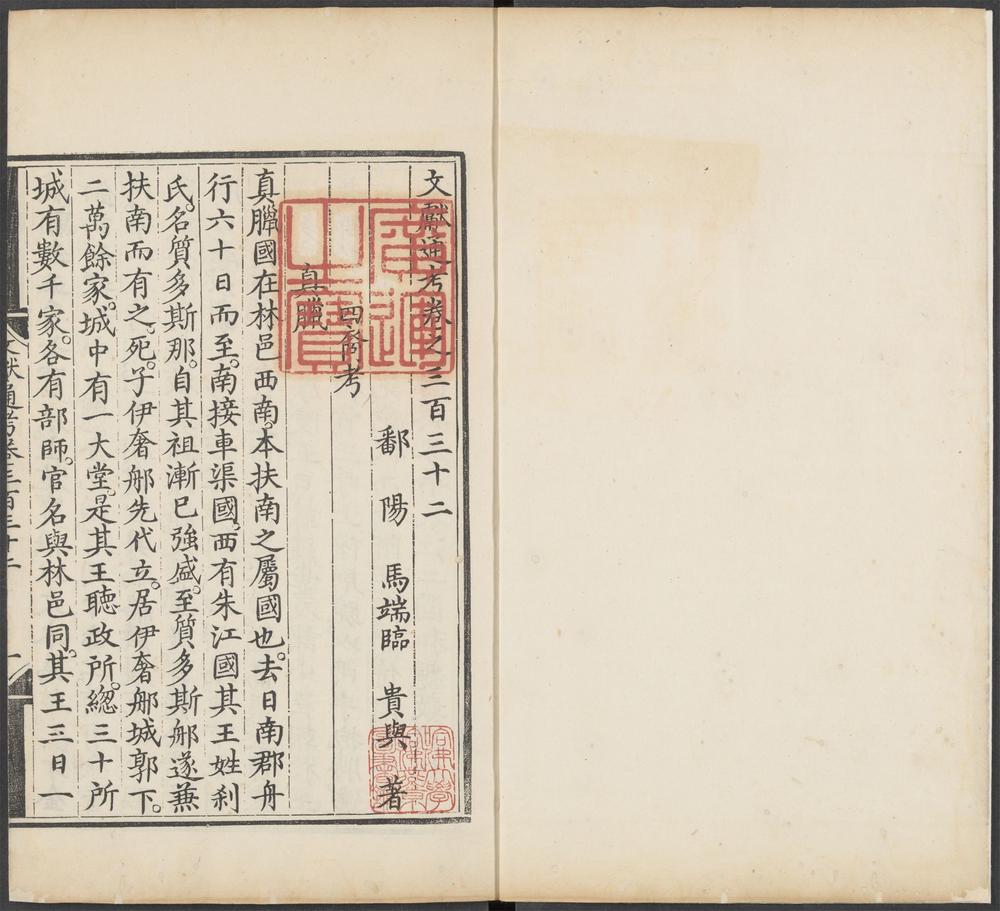 文獻通考卷之三百三十二
鄱陽 馬端臨 貴與 著
四裔考
真臘
真臘國在林邑西南。本扶南之屬國也。去日南郡舟
行六十日而至。南接車渠國。西有朱江國其王姓刹
氏。名質多斯那。自其祖漸已強盛。至質多斯那遂兼
扶南而有之。死。子伊奢那先代立。居伊奢那城郭下。
二萬餘家。城中有一大堂。是其王聽政所。緫三十所
城有數千家。各有部師。官名與林邑同。其王三日一
文獻通考卷三百三十二
一